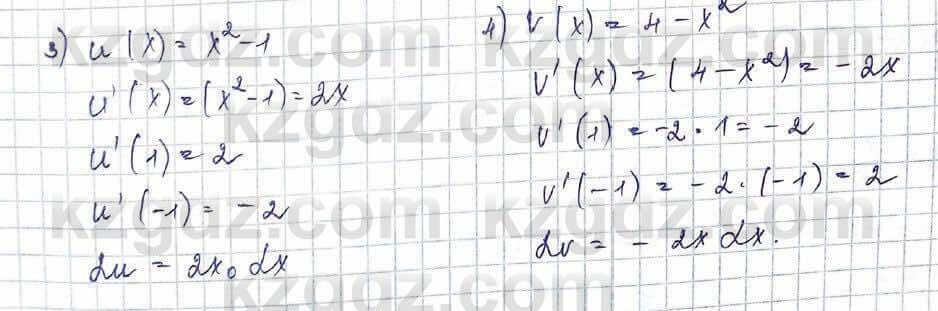 3) u(x) = x² - 1
u'(x) = (x² - 1) = 2x
u'(1) = 2
u'(-1) = -2
du = 2x₀ dx
4) v(x) = 4 - x²
v'(x) = (4 - x²) = -2x
v'(1) = -2 · 1 = -2
v'(-1) = -2 · (-1) = 2
dv = -2x dx.
kzgdz.com
kzgdz.com
kzgdz.com
kzgdz.com
kzgdz.com
kzgdz.com